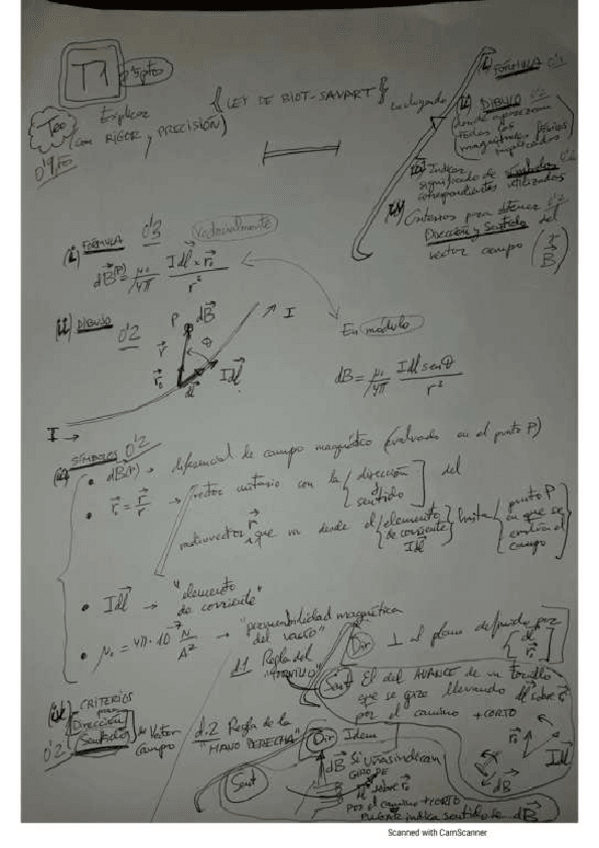 T1
Teo
Explicar
(con RIGOR y PRECISIÓN)
{LEY DE BIOT-SAVART}
incluyendo
i) FÓRMULA 0'3
ii) DIBUJO 0'2
donde aparezcan
todas las
magnitudes físicas
implicadas
iii) Indicar
significado de
correspondientes utilizados
iv) Criterios para obtener
Dirección y Sentido del
vector campo (B)
(i) FÓRMULA 0'3
Vectorialmente
dB(P) = μ₀/4π Idl × r₀ / r²
(ii) DIBUJO 0'2
P dB
I
r
θ
r₀
dl
Idl
I →
En módulo
dB = μ₀/4π Idl senθ / r²
(iii) SÍMBOLOS 0'2
• dB(P) → diferencial de campo magnético (evaluado en el punto P)
• r₀ = r/r → vector unitario con la {dirección y sentido} del
radiovector r que va desde el {elemento de corriente Idl} hasta {punto P en que se evalúa el campo}
• Idl → "elemento de corriente"
• μ₀ = 4π·10⁻⁷ N/A² → "permeabilidad magnética del vacío"
(iv) CRITERIOS
para
Dirección
Sentido de Vector
0'2 campo
d.1 Regla del
"TORNILLO"
Dir ⊥ al plano definido por {dl r₀}
Sent El del AVANCE de un tornillo
que se gire llevando dl sobre r₀
por el camino + CORTO
d.2 Regla de la
"MANO DERECHA"
Dir Idem
Sent
dB Si uñas indican
GIRO DE
dl sobre r₀
por el camino + CORTO
PULGAR indica sentido de dB
r₀
Idl
dB
Scanned with CamScanner